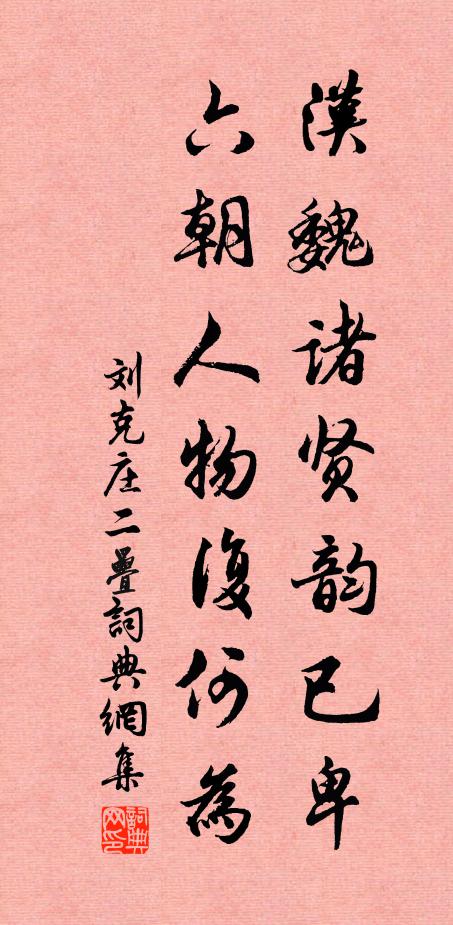 漢魏諸贤韵已卑
六朝人物復何為
刘克庄二疊詞典網集
詞典網印